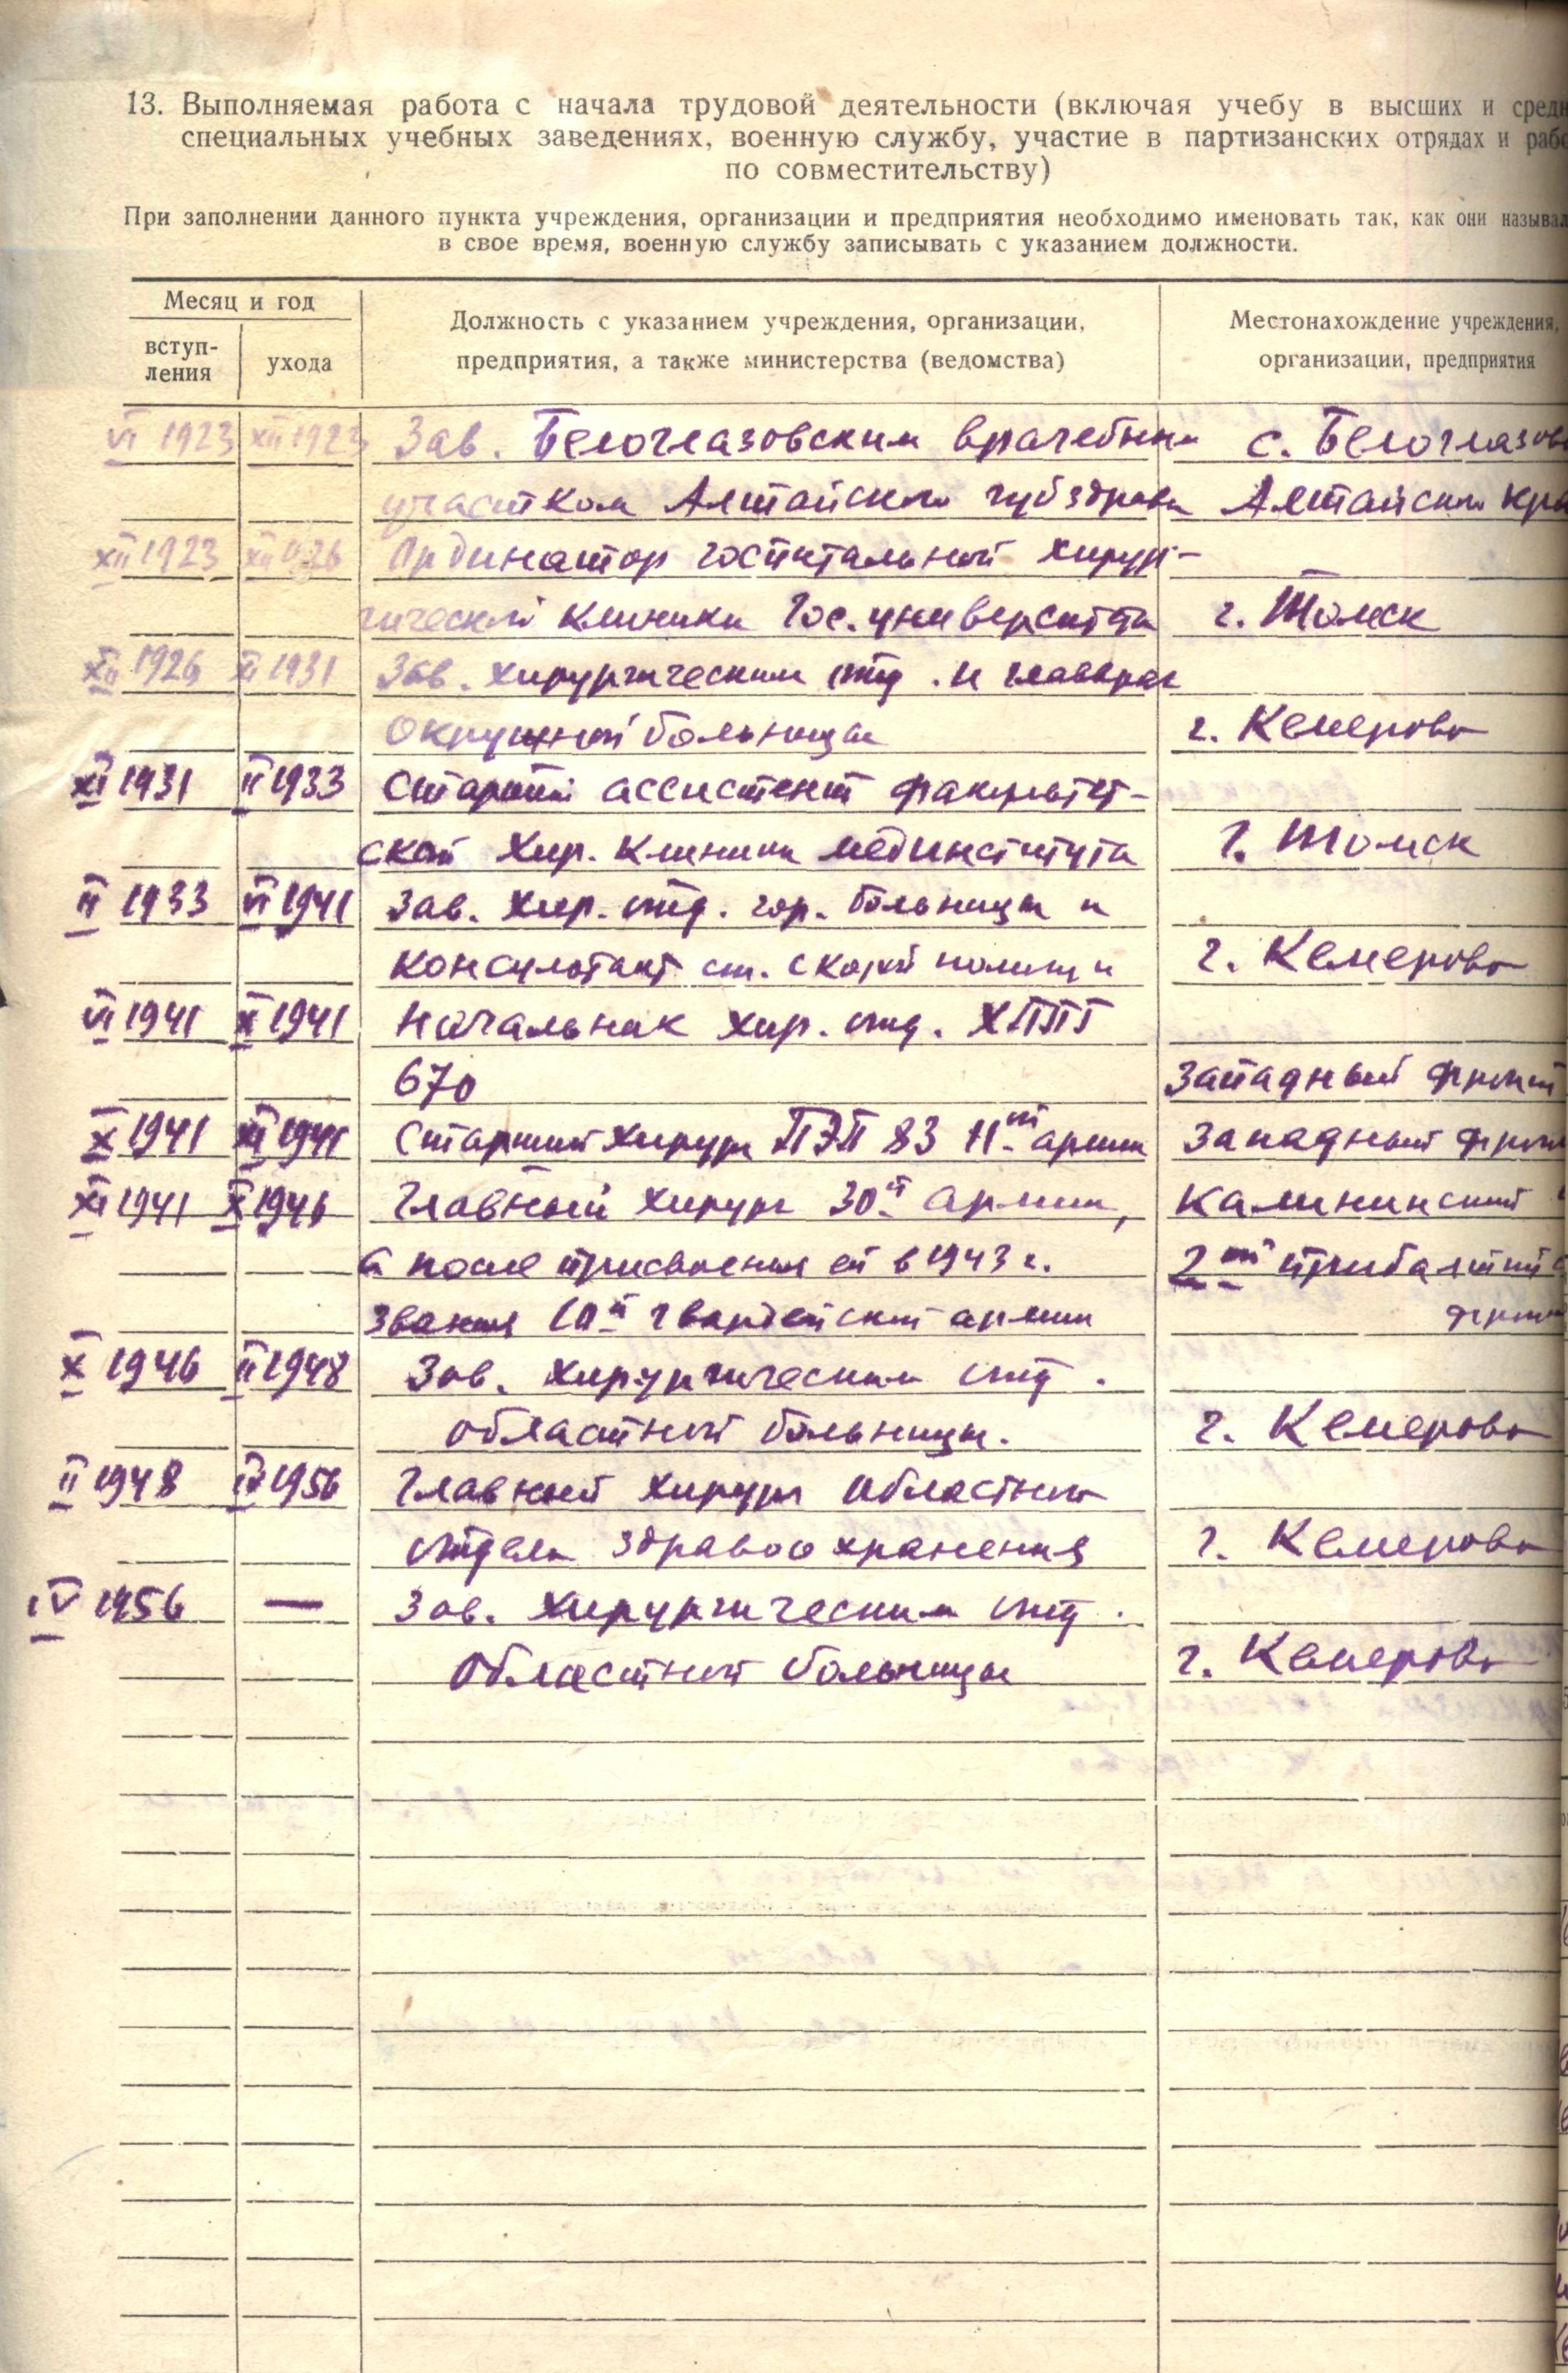 13. Выполняемая работа с начала трудовой деятельности (включая учебу в высших и средн
специальных учебных заведениях, военную службу, участие в партизанских отрядах и рабо
по совместительству)
При заполнении данного пункта учреждения, организации и предприятия необходимо именовать так, как они называл
в свое время, военную службу записывать с указанием должности.
Месяц и год
вступ-
ления
ухода
Должность с указанием учреждения, организации,
предприятия, а также министерства (ведомства)
Местонахождение учреждения,
организации, предприятия
VI 1923 XII 1923 Зав. Белоглазовским врачебным с. Белоглазово
участком Алтайского губздрава Алтайского кра
XII 1923 XII 1926 Ординатор госпитальной хирур-
гической клиники Гос. университета г. Томск
XII 1926 XI 1931 Зав. хирургическим отд. и главврач
окружной больницы г. Кемерово
XI 1931 II 1933 Старший ассистент факультет-
ской хир. клиники мединститута г. Томск
II 1933 VI 1941 Зав. хир. отд. гор. больницы и
консультант ст. скорой помощи г. Кемерово
VI 1941 X 1941 Начальник хир. отд. ХППГ
670 Западный фронт
X 1941 XI 1941 Старший хирург ПЭП 83 11ой армии Западный фронт
XI 1941 X 1946 Главный хирург 30й армии, Калининский
а после присвоения ей в 1943 г. 2ой прибалтий
звания 10й гвардейской армии фронт
X 1946 II 1948 Зав. хирургическим отд.
областной больницы. г. Кемерово
II 1948 IV 1956 Главный хирург областного
отдела здравоохранения г. Кемерово
IV 1956 — Зав. хирургическим отд.
областной больницы г. Кемерово